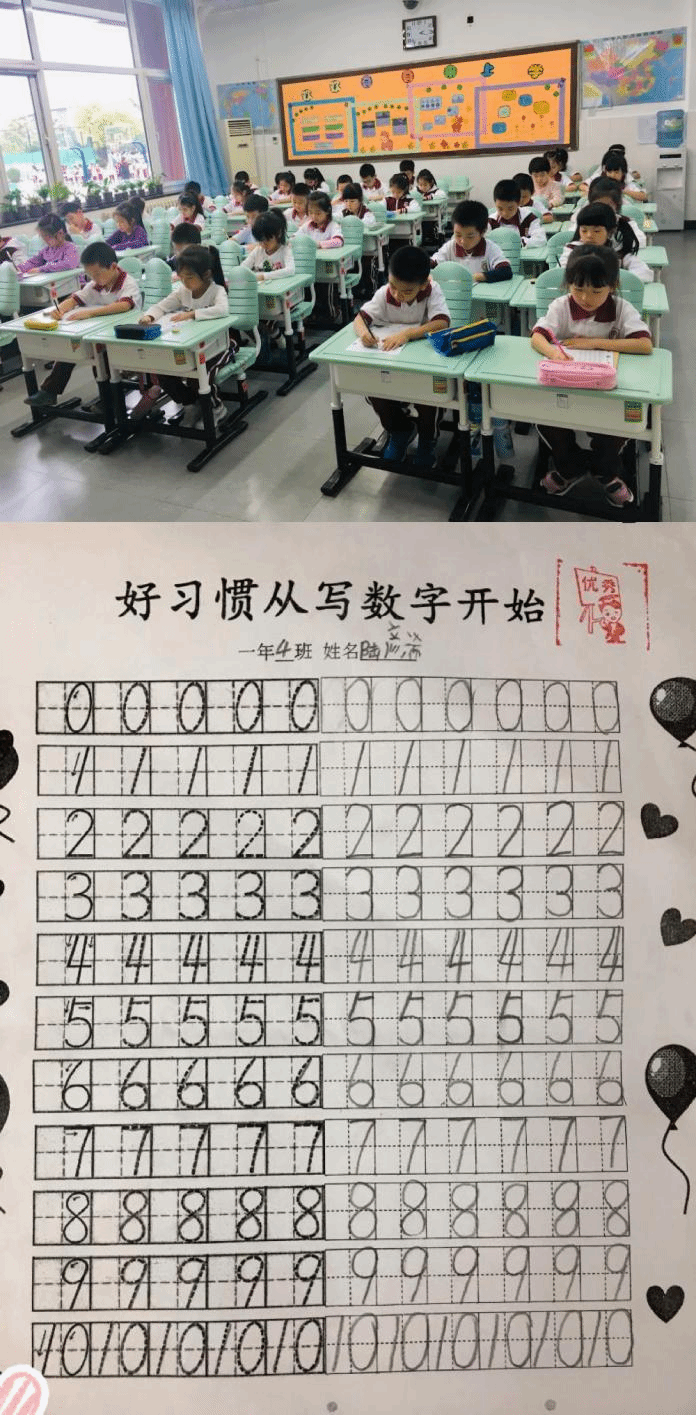 好习惯从写数字开始
优秀
一年4班 姓名陆
0 0 0 0 0 0 0 0 0 0 0
1 1 1 1 1 1 1 1 1 1 1
2 2 2 2 2 2 2 2 2 2 2
3 3 3 3 3 3 3 3 3 3 3
4 4 4 4 4 4 4 4 4 4 4
5 5 5 5 5 5 5 5 5 5 5
6 6 6 6 6 6 6 6 6 6 6
7 7 7 7 7 7 7 7 7 7 7
8 8 8 8 8 8 8 8 8 8 8
9 9 9 9 9 9 9 9 9 9 9
10 10 10 10 10 10 10 10 10 10 10